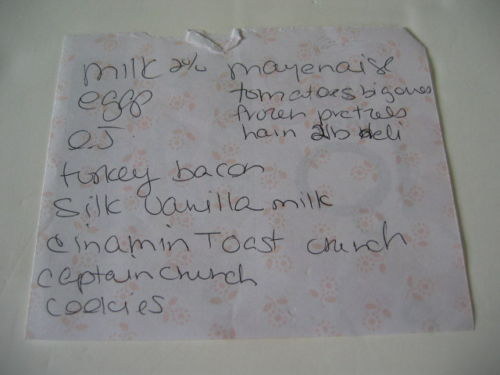 milk 2% mayenaise
eggs
tomatoes big ones
frozen pretzels
O.J
ham 2lb deli
turkey bacon
Silk Vanilla milk
Cinamin Toast crunch
captain crunch
cookies